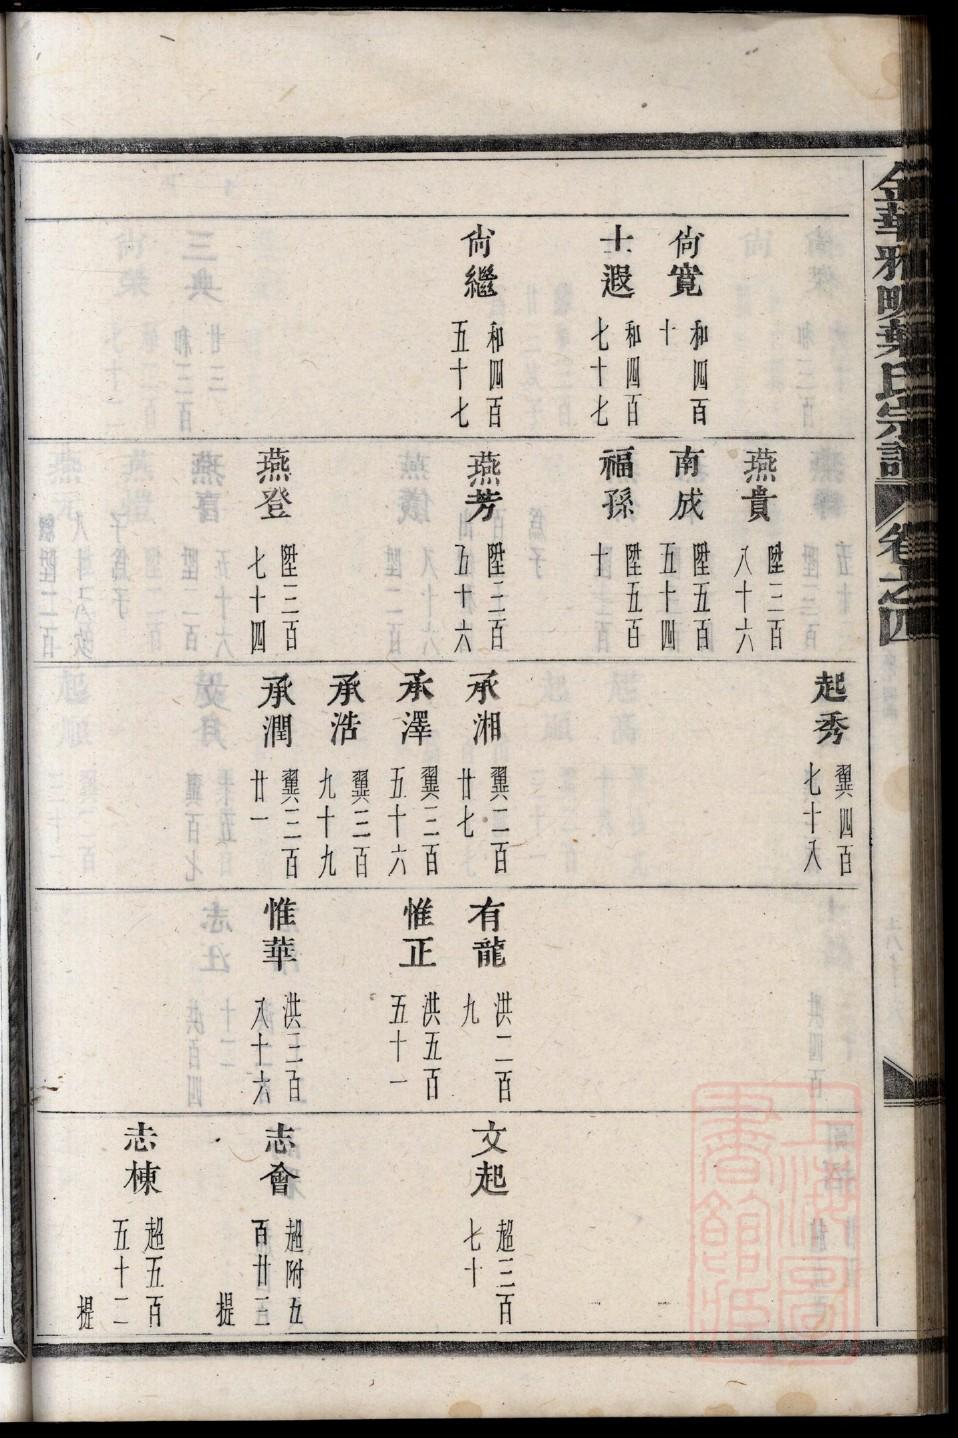 金華雅畈葉氏宗譜 卷之四
尚寬 和四百十
士遐 和四百七十七
尚繼 和四百五十七
燕貴 陞三百八十六
南成 陞五百五十四
福孫 陞五百十
燕芳 陞三百五十六
燕登 陞三百七十四
起秀 翼四百七十八
承湘 翼二百廿七
承澤 翼三百五十六
承浩 翼三百九十九
承潤 翼三百廿一
有龍 洪二百九
惟正 洪五百五十一
惟華 洪三百八十六
文起 超三百七十
志會 超附五百廿三 提
志棟 超五百五十二 提
上海圖書館藏